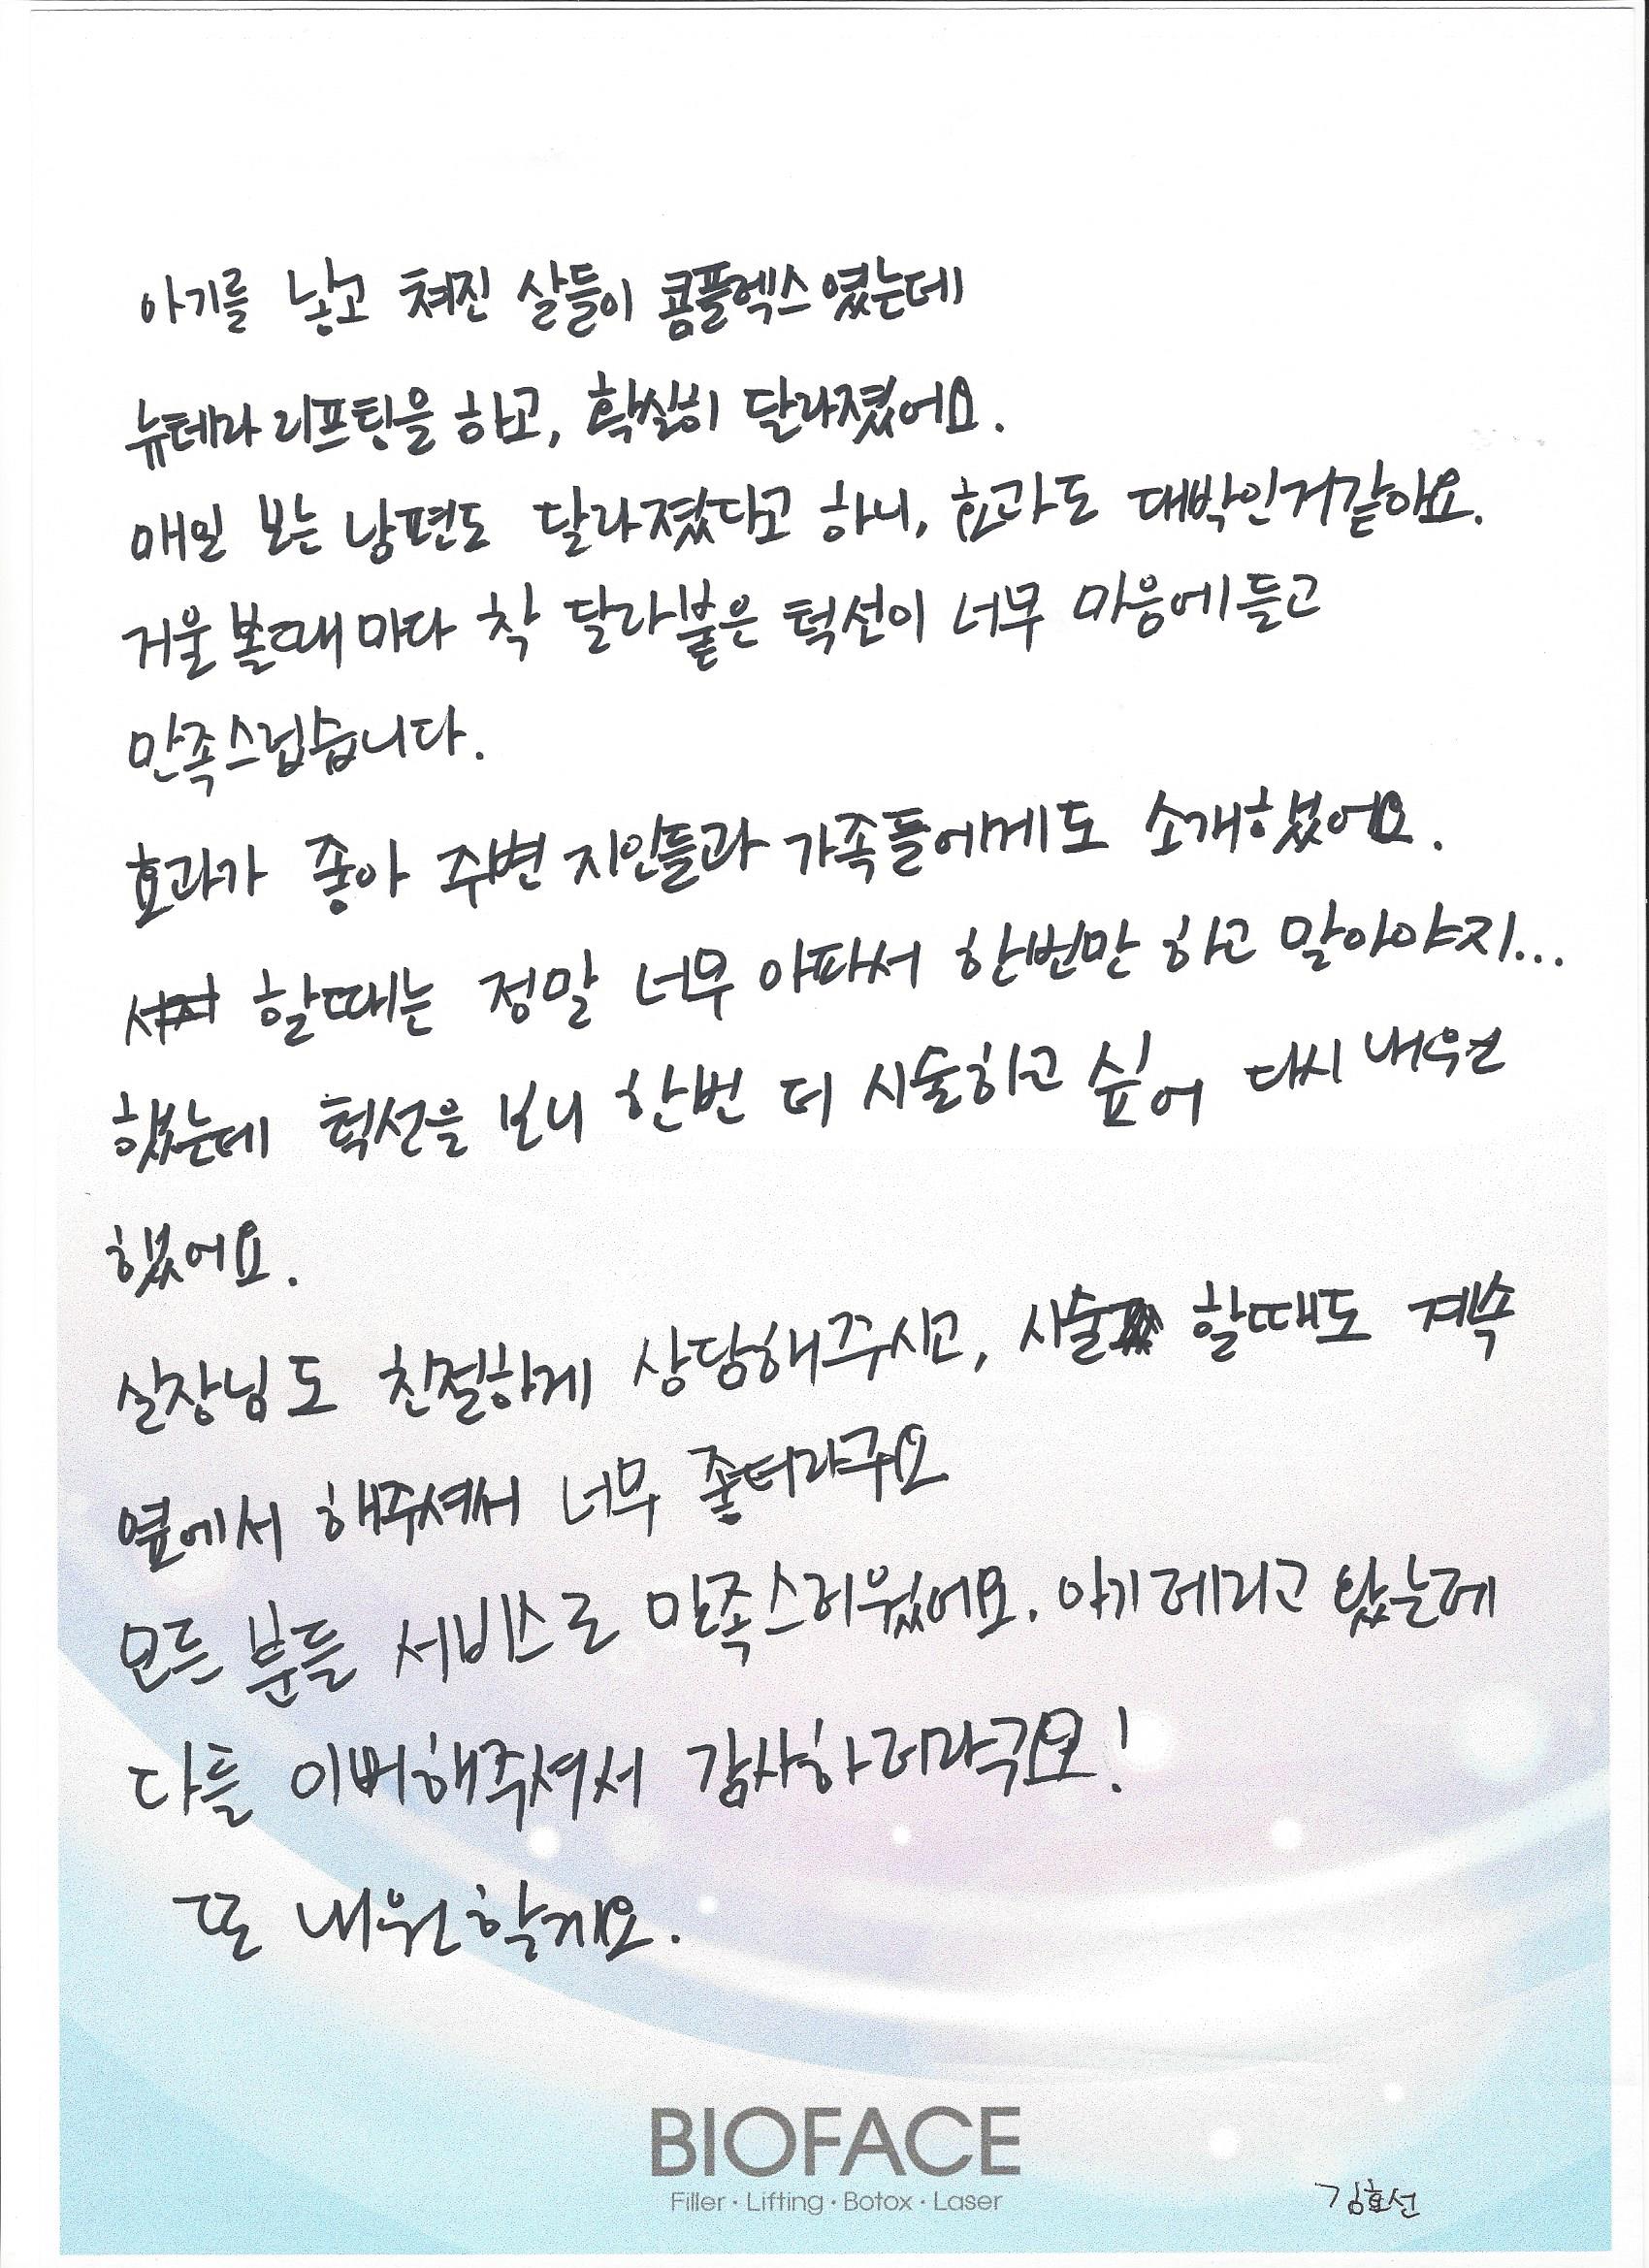 아기를 낳고 쳐진 살들이 콤플렉스였는데
뉴테라 리프팅을 하고, 확실히 달라졌어요.
매일 보는 남편도 달라졌다고 하니, 효과도 대박인거같아요.
거울 볼때마다 착 달라붙은 턱선이 너무 마음에들고
만족스럽습니다.
효과가 좋아 주변 지인들과 가족들에게도 소개했었어요.
할때는 정말 너무 아파서 한번만 하고 말아야지...
했는데 턱선을 보니 한번 더 시술하고 싶어 다시 내원
했었어요.
실장님도 친절하게 상담해주시고, 시술 할때도 계속
옆에서 해주셔서 너무 좋더라구요
모든 분들 서비스로 만족스러웠어요. 아기 데리고 왔는데
다들 이뻐해주셔서 감사하더라구요!
또 내원할게요.
BIOFACE
Filler · Lifting · Botox · Laser
김효선